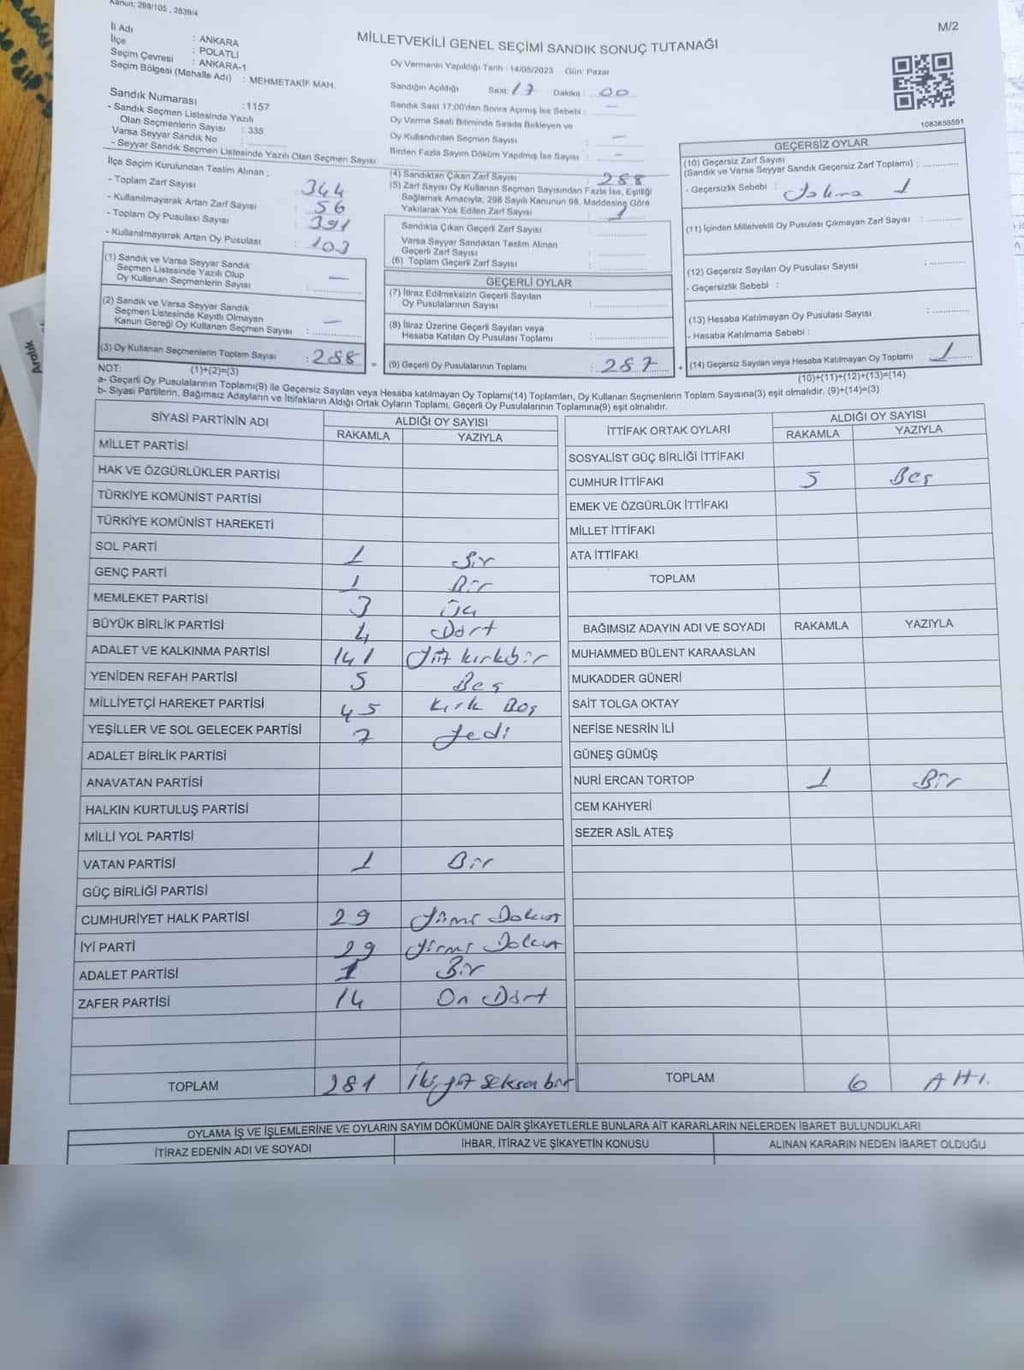 Kanun; 298/105 , 2839/4
M/2
MİLLETVEKİLİ GENEL SEÇİMİ SANDIK SONUÇ TUTANAĞI
İl Adı : ANKARA
İlçe : POLATLI
Seçim Çevresi : ANKARA-1
Seçim Bölgesi (Mahalle Adı) : MEHMETAKİF MAH.
Sandık Numarası : 1157
- Sandık Seçmen Listesinde Yazılı
Olan Seçmenlerin Sayısı : 335
Varsa Seyyar Sandık No
- Seyyar Sandık Seçmen Listesinde Yazılı Olan Seçmen Sayısı
Oy Vermenin Yapıldığı Tarih : 14/05/2023 Gün: Pazar
Sandığın Açıldığı Saat: 17 Dakika : 00
Sandık Saat 17:00'den Sonra Açılmış İse Sebebi : —
Oy Verme Saati Bitiminde Sırada Bekleyen ve
Oy Kullandırılan Seçmen Sayısı : —
Birden Fazla Sayım Döküm Yapılmış İse Sayısı : —
1083859591
İlçe Seçim Kurulundan Teslim Alınan :
- Toplam Zarf Sayısı 344
- Kullanılmayarak Artan Zarf Sayısı 56
- Toplam Oy Pusulası Sayısı 391
- Kullanılmayarak Artan Oy Pusulası 103
(1) Sandık ve Varsa Seyyar Sandık
Seçmen Listesinde Yazılı Olup
Oy Kullanan Seçmenlerin Sayısı : —
(2) Sandık ve Varsa Seyyar Sandık
Seçmen Listesinde Kayıtlı Olmayan
Kanun Gereği Oy Kullanan Seçmen Sayısı : —
(3) Oy Kullanan Seçmenlerin Toplam Sayısı : 288
(1)+(2)=(3)
(4) Sandıktan Çıkan Zarf Sayısı : 288
(5) Zarf Sayısı Oy Kullanan Seçmen Sayısından Fazla İse, Eşitliği
Sağlamak Amacıyla, 298 Sayılı Kanunun 98. Maddesine Göre
Yakılarak Yok Edilen Zarf Sayısı : 1
Sandıkta Çıkan Geçerli Zarf Sayısı
Varsa Seyyar Sandıktan Teslim Alınan
Geçerli Zarf Sayısı
(6) Toplam Geçerli Zarf Sayısı
GEÇERLİ OYLAR
(7) İtiraz Edilmeksizin Geçerli Sayılan
Oy Pusulalarının Sayısı
(8) İtiraz Üzerine Geçerli Sayılan veya
Hesaba Katılan Oy Pusulası Toplamı
(9) Geçerli Oy Pusulalarının Toplamı : 287
GEÇERSİZ OYLAR
(10) Geçersiz Zarf Sayısı
(Sandık ve Varsa Seyyar Sandık Geçersiz Zarf Toplamı) :
- Geçersizlik Sebebi : 1
(11) İçinden Milletvekili Oy Pusulası Çıkmayan Zarf Sayısı
(12) Geçersiz Sayılan Oy Pusulası Sayısı :
- Geçersizlik Sebebi :
(13) Hesaba Katılmayan Oy Pusulası Sayısı :
- Hesaba Katılmama Sebebi :
(14) Geçersiz Sayılan veya Hesaba Katılmayan Oy Toplamı 1
(10)+(11)+(12)+(13)=(14)
NOT:
a- Geçerli Oy Pusulalarının Toplamı(9) ile Geçersiz Sayılan veya Hesaba katılmayan Oy Toplamı(14) Toplamları, Oy Kullanan Seçmenlerin Toplam Sayısına(3) eşit olmalıdır. (9)+(14)=(3)
b- Siyasi Partilerin, Bağımsız Adayların ve İttifakların Aldığı Ortak Oyların Toplamı, Geçerli Oy Pusulalarının Toplamına(9) eşit olmalıdır.
SİYASİ PARTİNİN ADI ALDIĞI OY SAYISI
RAKAMLA YAZIYLA
MİLLET PARTİSİ
HAK VE ÖZGÜRLÜKLER PARTİSİ
TÜRKİYE KOMÜNİST PARTİSİ
TÜRKİYE KOMÜNİST HAREKETİ
SOL PARTİ 1 Bir
GENÇ PARTİ 1 Bir
MEMLEKET PARTİSİ 3 Üç
BÜYÜK BİRLİK PARTİSİ 4 Dört
ADALET VE KALKINMA PARTİSİ 141 Yüz kırkbir
YENİDEN REFAH PARTİSİ 5 Beş
MİLLİYETÇİ HAREKET PARTİSİ 45 Kırk Beş
YEŞİLLER VE SOL GELECEK PARTİSİ 7 Yedi
ADALET BİRLİK PARTİSİ
ANAVATAN PARTİSİ
HALKIN KURTULUŞ PARTİSİ
MİLLİ YOL PARTİSİ
VATAN PARTİSİ 1 Bir
GÜÇ BİRLİĞİ PARTİSİ
CUMHURİYET HALK PARTİSİ 29 Yirmi Dokuz
İYİ PARTİ 29 Yirmi Dokuz
ADALET PARTİSİ 1 Bir
ZAFER PARTİSİ 14 On Dört
TOPLAM 281 İkiyüz Seksen bir
İTTİFAK ORTAK OYLARI ALDIĞI OY SAYISI
RAKAMLA YAZIYLA
SOSYALİST GÜÇ BİRLİĞİ İTTİFAKI
CUMHUR İTTİFAKI 5 Beş
EMEK VE ÖZGÜRLÜK İTTİFAKI
MİLLET İTTİFAKI
ATA İTTİFAKI
TOPLAM
BAĞIMSIZ ADAYIN ADI VE SOYADI RAKAMLA YAZIYLA
MUHAMMED BÜLENT KARAASLAN
MUKADDER GÜNERİ
SAİT TOLGA OKTAY
NEFİSE NESRİN İLİ
GÜNEŞ GÜMÜŞ
NURİ ERCAN TORTOP 1 Bir
CEM KAHYERİ
SEZER ASİL ATEŞ
TOPLAM 6 Altı.
OYLAMA İŞ VE İŞLEMLERİNE VE OYLARIN SAYIM DÖKÜMÜNE DAİR ŞİKAYETLERLE BUNLARA AİT KARARLARIN NELERDEN İBARET BULUNDUKLARI
İTİRAZ EDENİN ADI VE SOYADI İHBAR, İTİRAZ VE ŞİKAYETİN KONUSU ALINAN KARARIN NEDEN İBARET OLDUĞU
Aralık